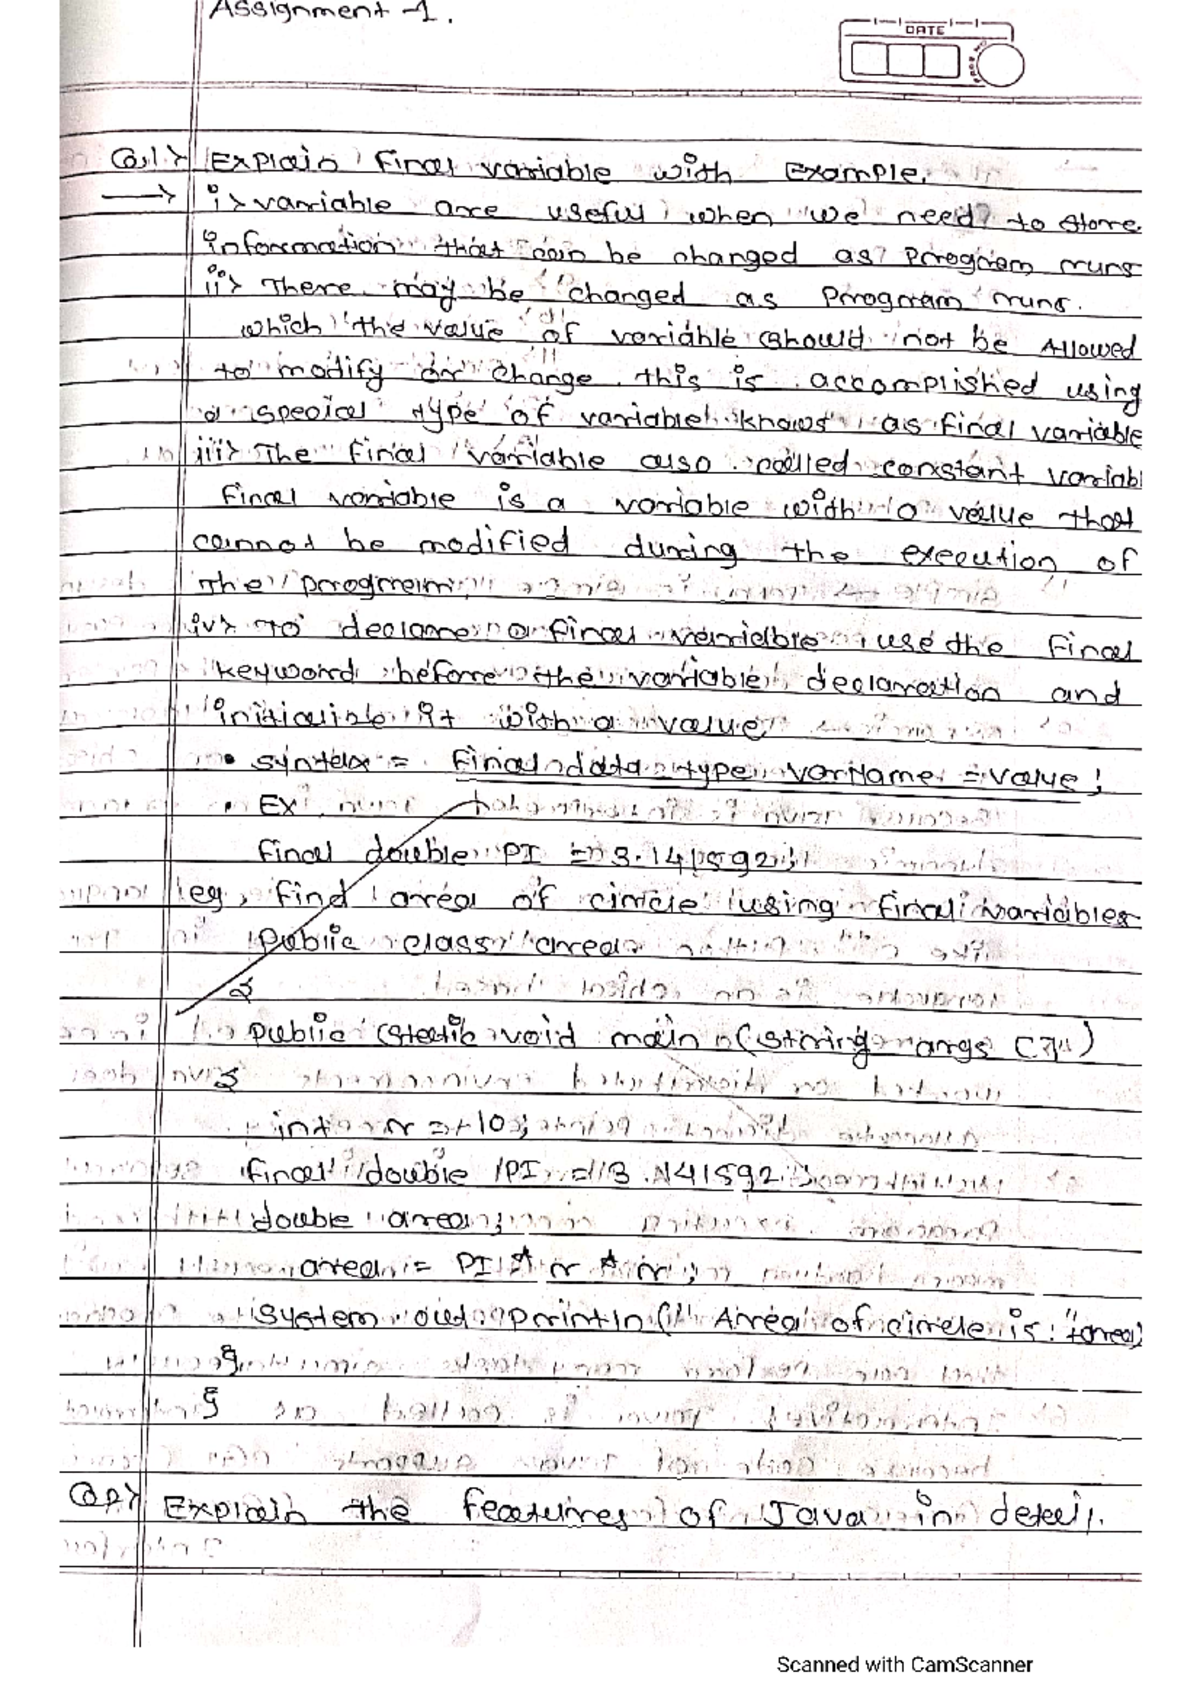 Assignment -1.
DATE
Q.1> Explain Final variable with Example.
→ i> variable are useful when we need to store
information that can be changed as Program runs
ii> There may be changed as Program runs.
which the value of variable should not be Allowed
to modify or change. this is accomplished using
a special type of variable known as final variable
iii> The final variable also called constant variabl
final variable is a variable with a value that
cannot be modified during the execution of
the program.
iv> to declare a final variable use the final
keyword before the variable declaration and
initialible it with a value
• syntax = final data type varName = value;
• Ex
final double PI = 3.141592;
eg, find area of circle using final variables
Public class area
{
public static void main (string args [])
{
int r = 10;
final double PI = 3.141592;
double area;
area = PI * r * r;
system out println (" Area of circle is: "+area)
}
}
Q2> Explain the features of Java in detail.
Scanned with CamScanner